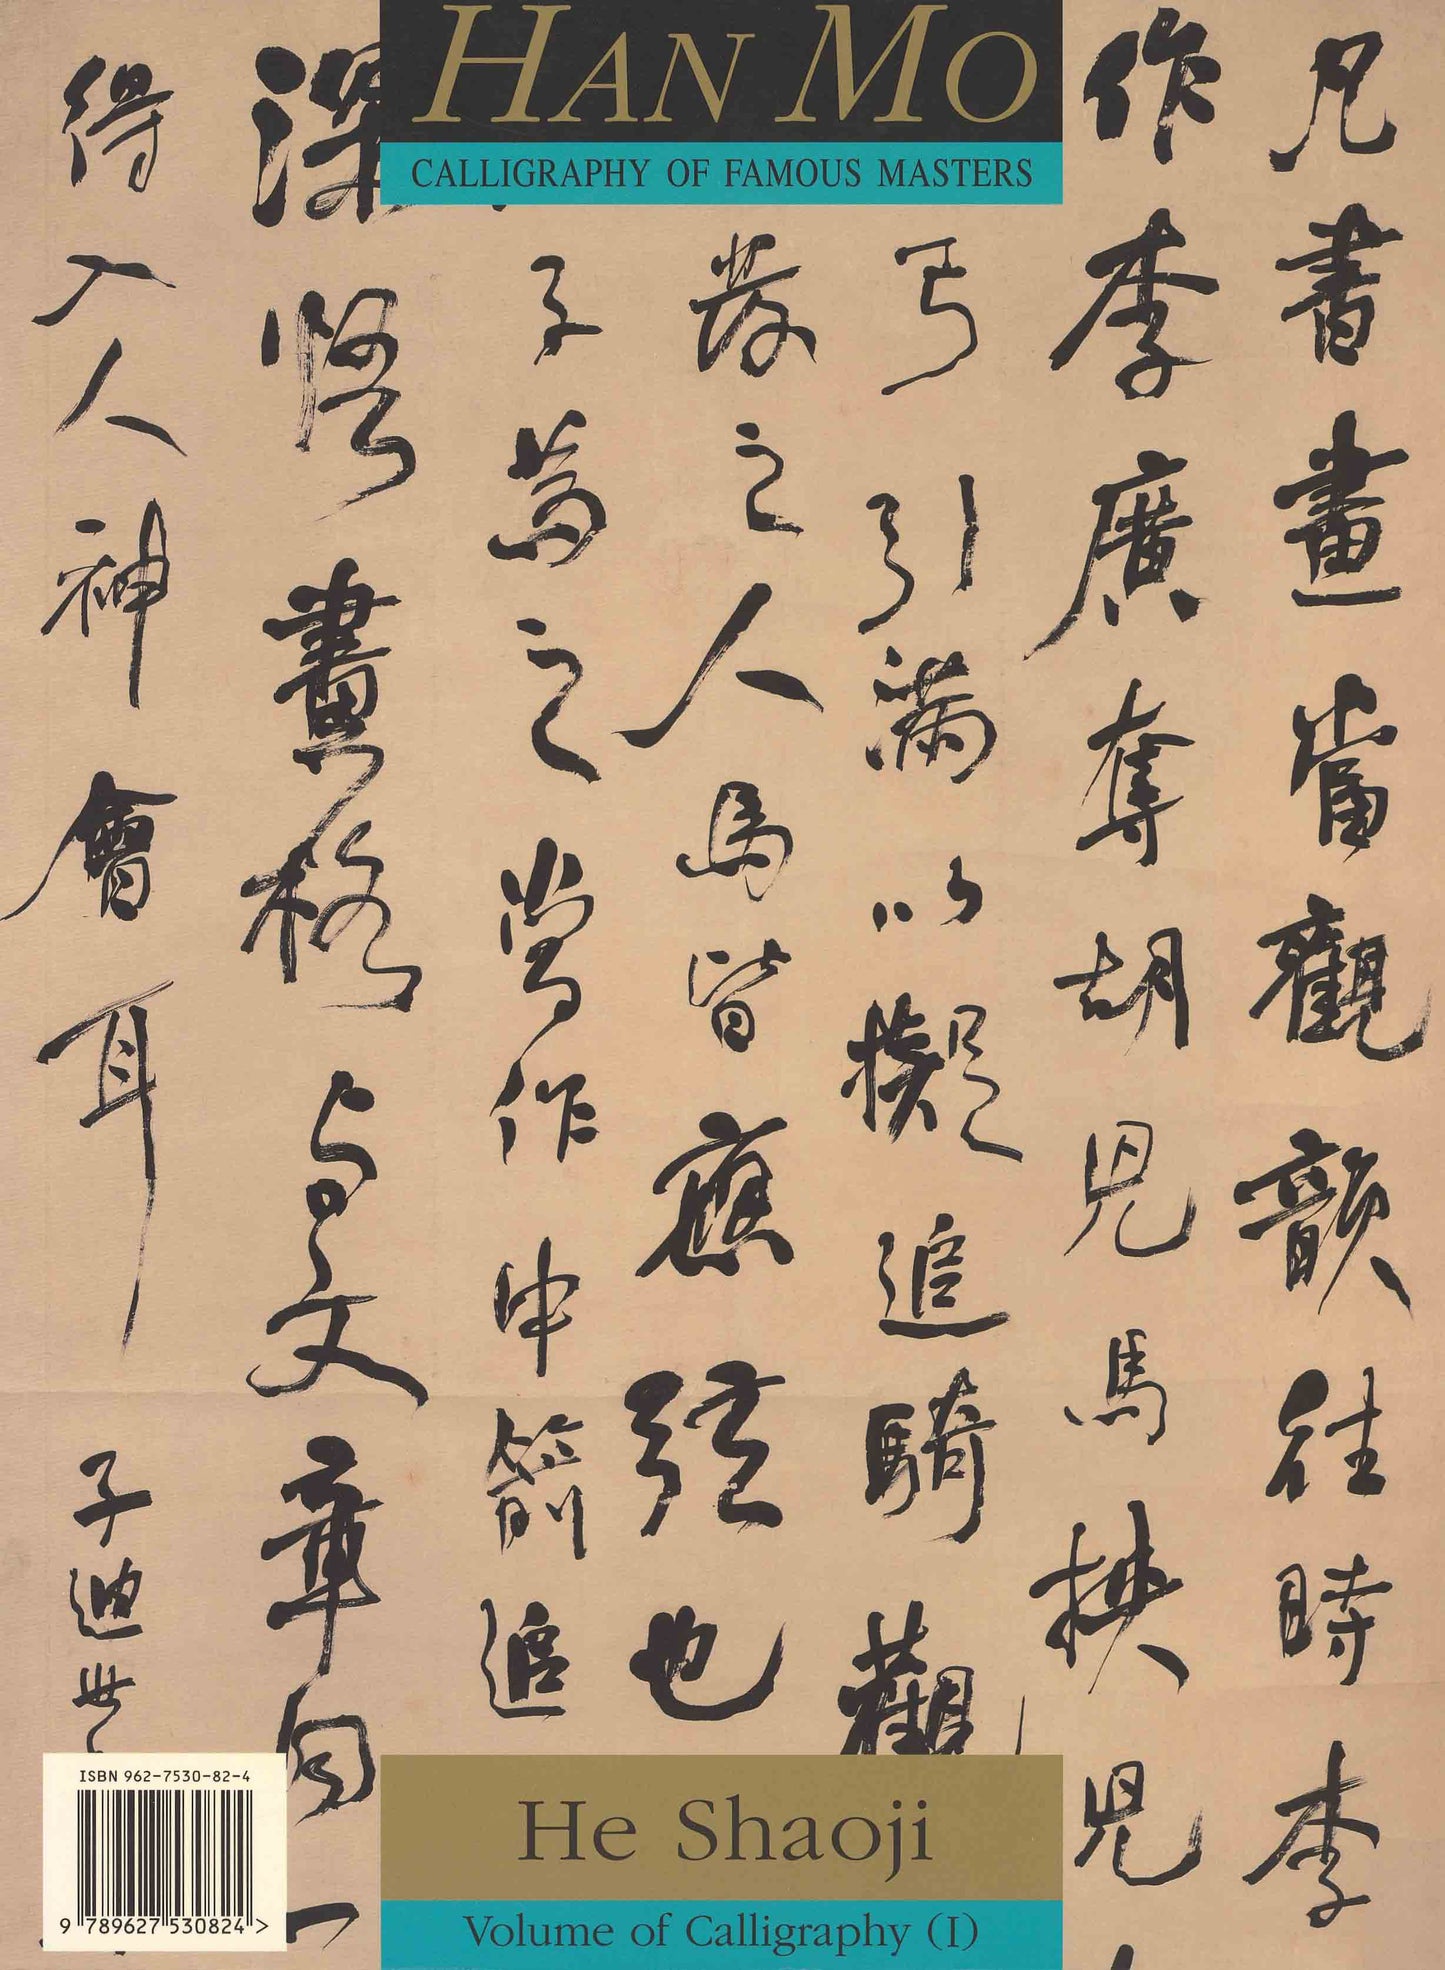 HAN MO
CALLIGRAPHY OF FAMOUS MASTERS
凡書畫當觀韻往時李
作李廣奪胡兒馬挾兒
弓引滿以擬追騎觀
發之人馬皆應弦也
子為之當作中箭追
深悟畫格与文章同一
得入人神會耳
子迪世
He Shaoji
Volume of Calligraphy (I)
ISBN 962-7530-82-4
9 789627 530824 >